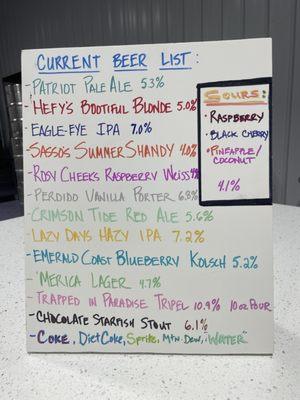 CURRENT BEER LIST :
- PATRIOT PALE ALE 5.3%
- HEFY'S BOOTIFUL BLONDE 5.0%
- EAGLE-EYE IPA 7.0%
- SASSO'S SUMMER SHANDY 4.0%
- ROSY CHEEK'S RASPBERRY WEISS
- PERDIDO VANILLA PORTER 6.3%
- CRIMSON TIDE RED ALE 5.6%
- LAZY DAYS HAZY IPA 7.2%
- EMERALD COAST BLUEBERRY KOLSCH 5.2%
- 'MERICA LAGER 4.7%
- TRAPPED IN PARADISE TRIPEL 10.9% 10oz POUR
- CHOCOLATE STARFISH STOUT 6.1%
- COKE, DIET COKE, Sprite, Mtn. Dew, "WATER"
SOURS:
• RASPBERRY
• BLACK CHERRY
• PINEAPPLE/
COCONUT
4.1%